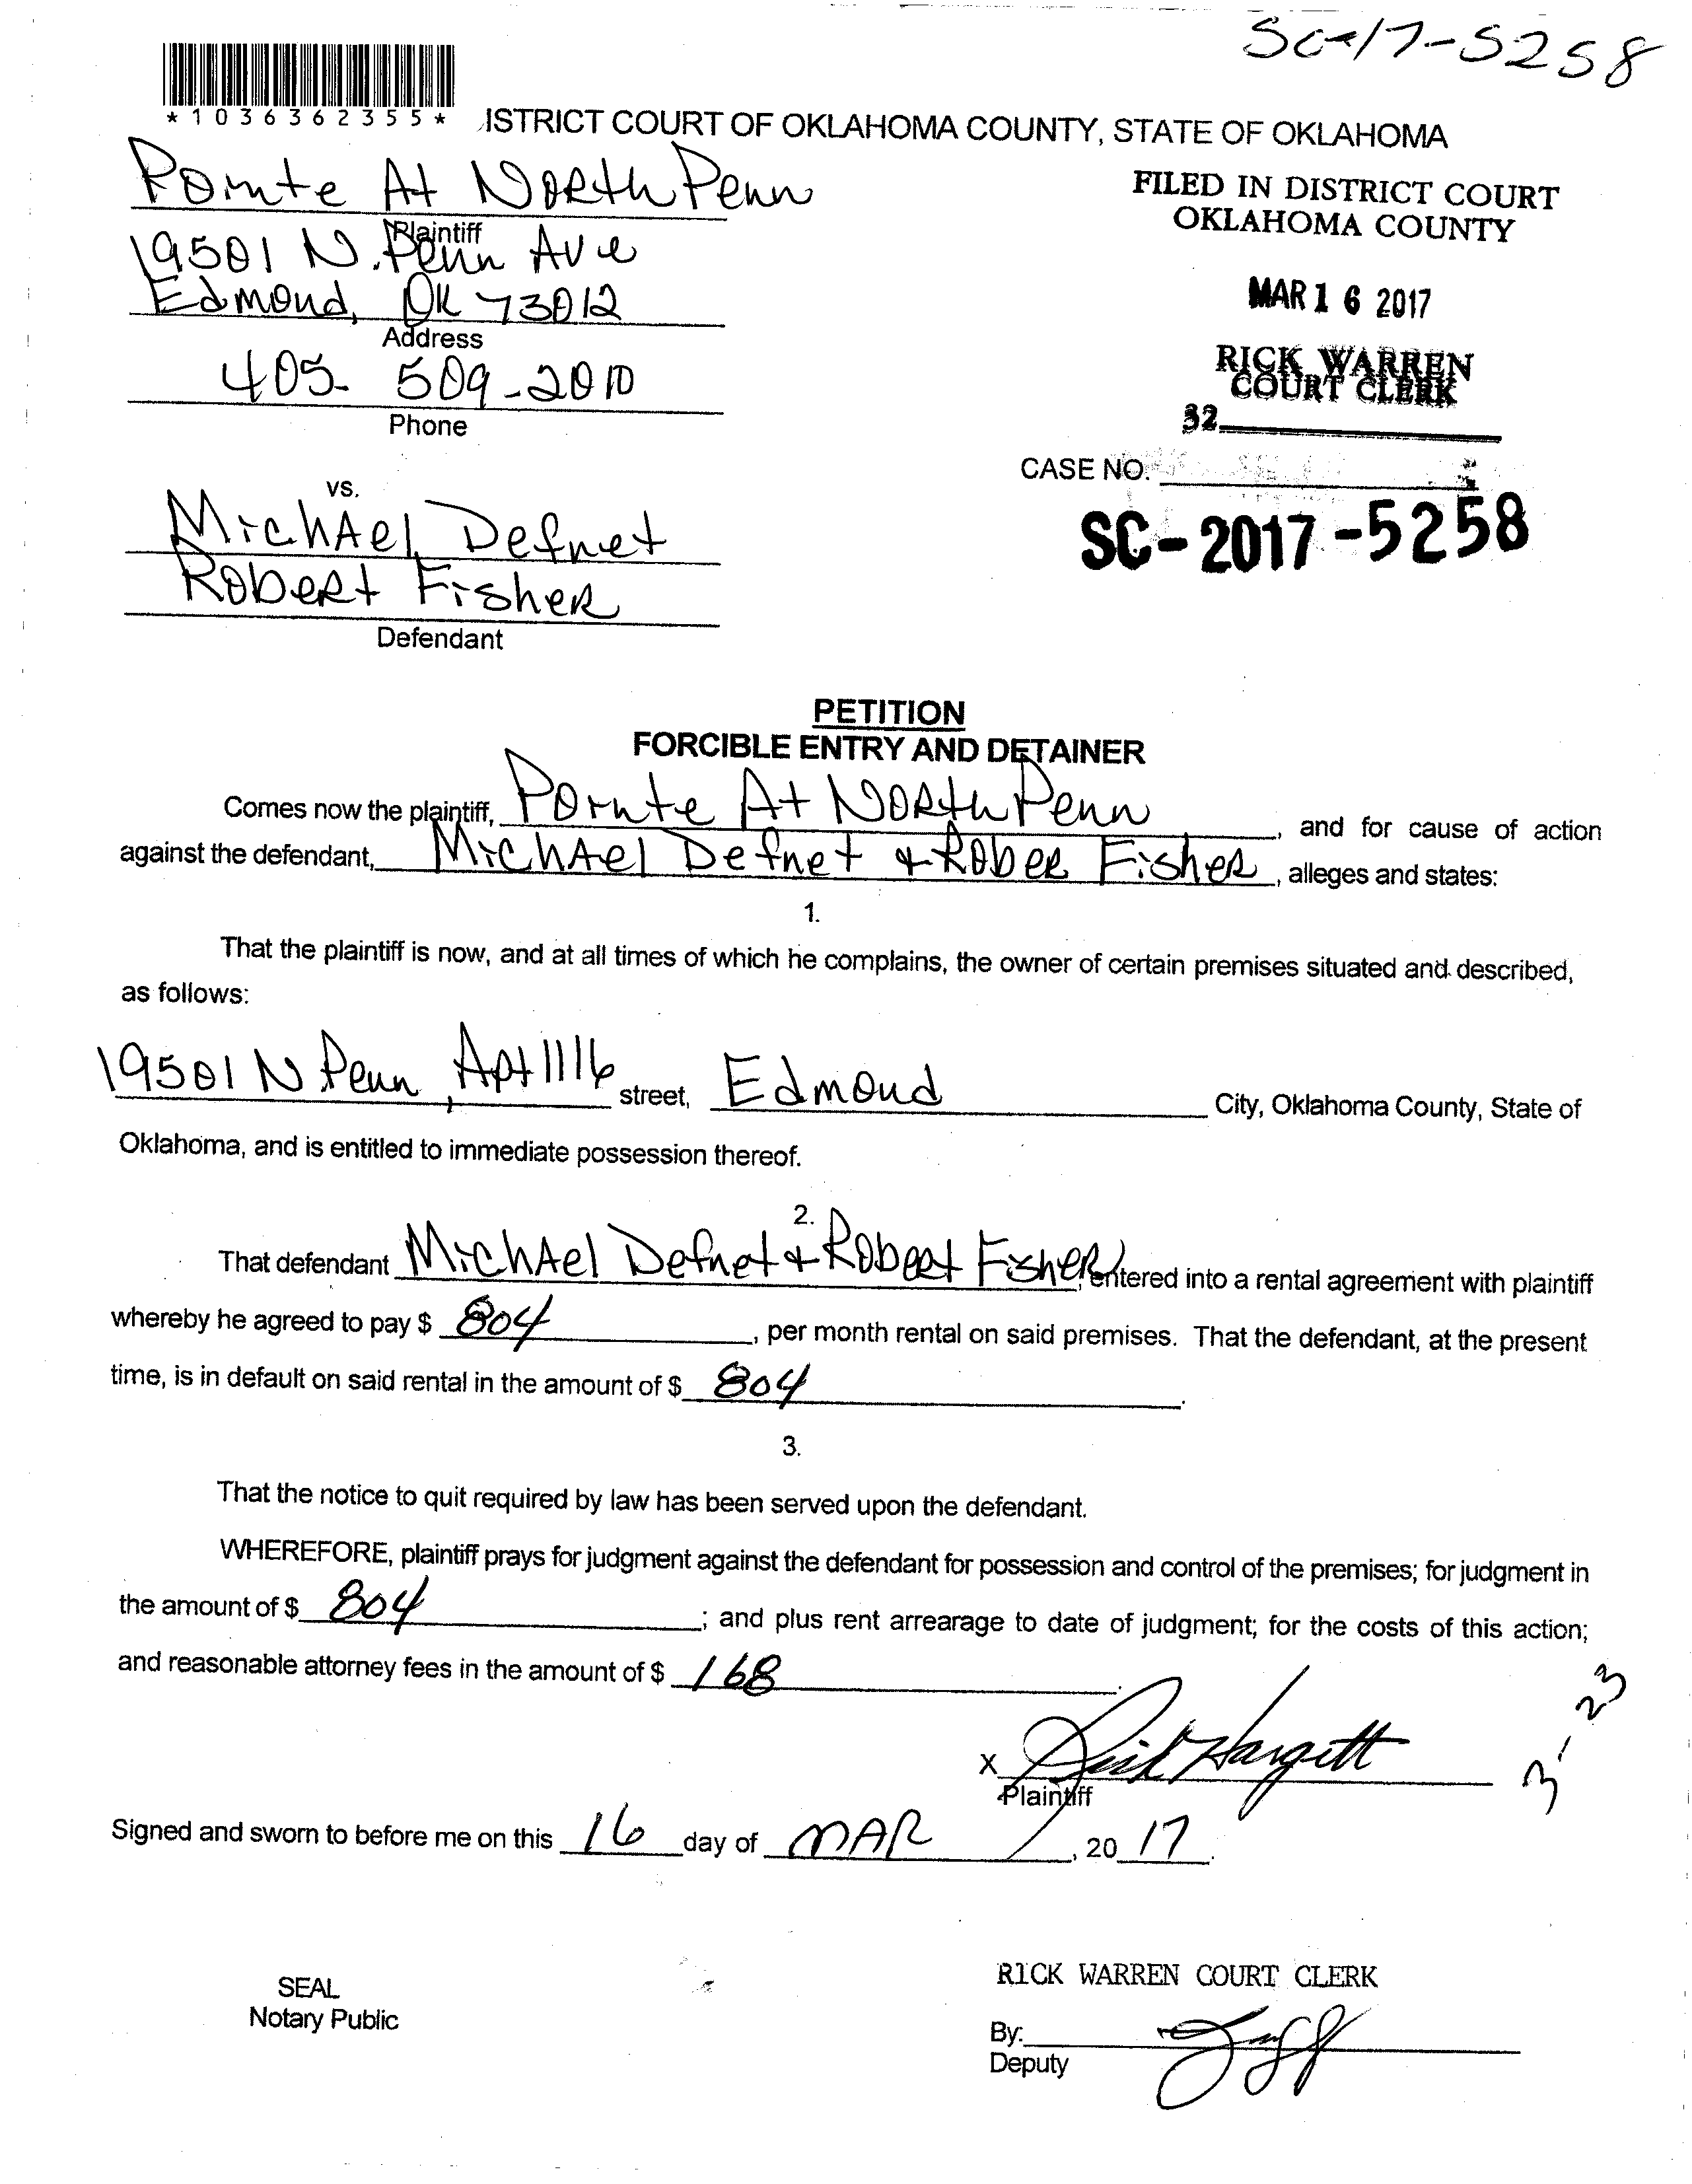 SC-17-5258
*1036362355*
ISTRICT COURT OF OKLAHOMA COUNTY, STATE OF OKLAHOMA
Pointe At North Penn
Plaintiff
19501 N. Penn Ave
Edmond, OK 73012
Address
405-509-2010
Phone
FILED IN DISTRICT COURT
OKLAHOMA COUNTY
MAR 16 2017
RICK WARREN
COURT CLERK
32
CASE NO.
SC-2017-5258
vs.
Michael Defnet
Robert Fisher
Defendant
PETITION
FORCIBLE ENTRY AND DETAINER
Comes now the plaintiff, Pointe At North Penn, and for cause of action
against the defendant, Michael Defnet & Rober Fisher, alleges and states:
1.
That the plaintiff is now, and at all times of which he complains, the owner of certain premises situated and described,
as follows:
19501 N Penn, Apt 1116 street, Edmond City, Oklahoma County, State of
Oklahoma, and is entitled to immediate possession thereof.
2.
That defendant Michael Defnet & Robert Fisher, entered into a rental agreement with plaintiff
whereby he agreed to pay $ 804, per month rental on said premises. That the defendant, at the present
time, is in default on said rental in the amount of $ 804.
3.
That the notice to quit required by law has been served upon the defendant.
WHEREFORE, plaintiff prays for judgment against the defendant for possession and control of the premises; for judgment in
the amount of $ 804; and plus rent arrearage to date of judgment; for the costs of this action;
and reasonable attorney fees in the amount of $ 168.
3-23
X Hargett
Plaintiff
Signed and sworn to before me on this 16 day of MAR, 2017.
SEAL
Notary Public
RICK WARREN COURT CLERK
By:
Deputy